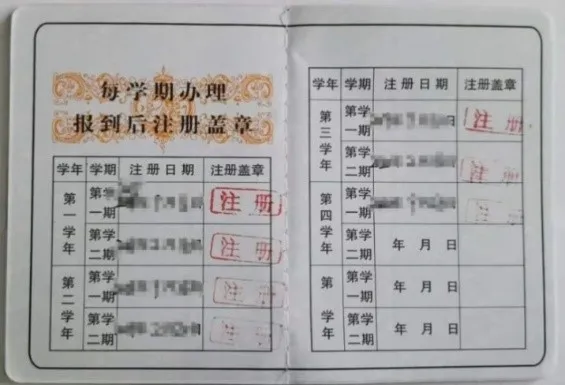 每学期办理
报到后注册盖章
学年 学期 注册日期 注册盖章
第一学年 第学一期 注册
第学二期 注册
第二学年 第学一期 注册
第学二期 注册
学年 学期 注册日期 注册盖章
第三学年 第学一期 日 注册
第学二期 注册
第四学年 第学一期 注册
第学二期 年 月 日
第 学年 第学一期 年 月 日
第学二期 年 月 日